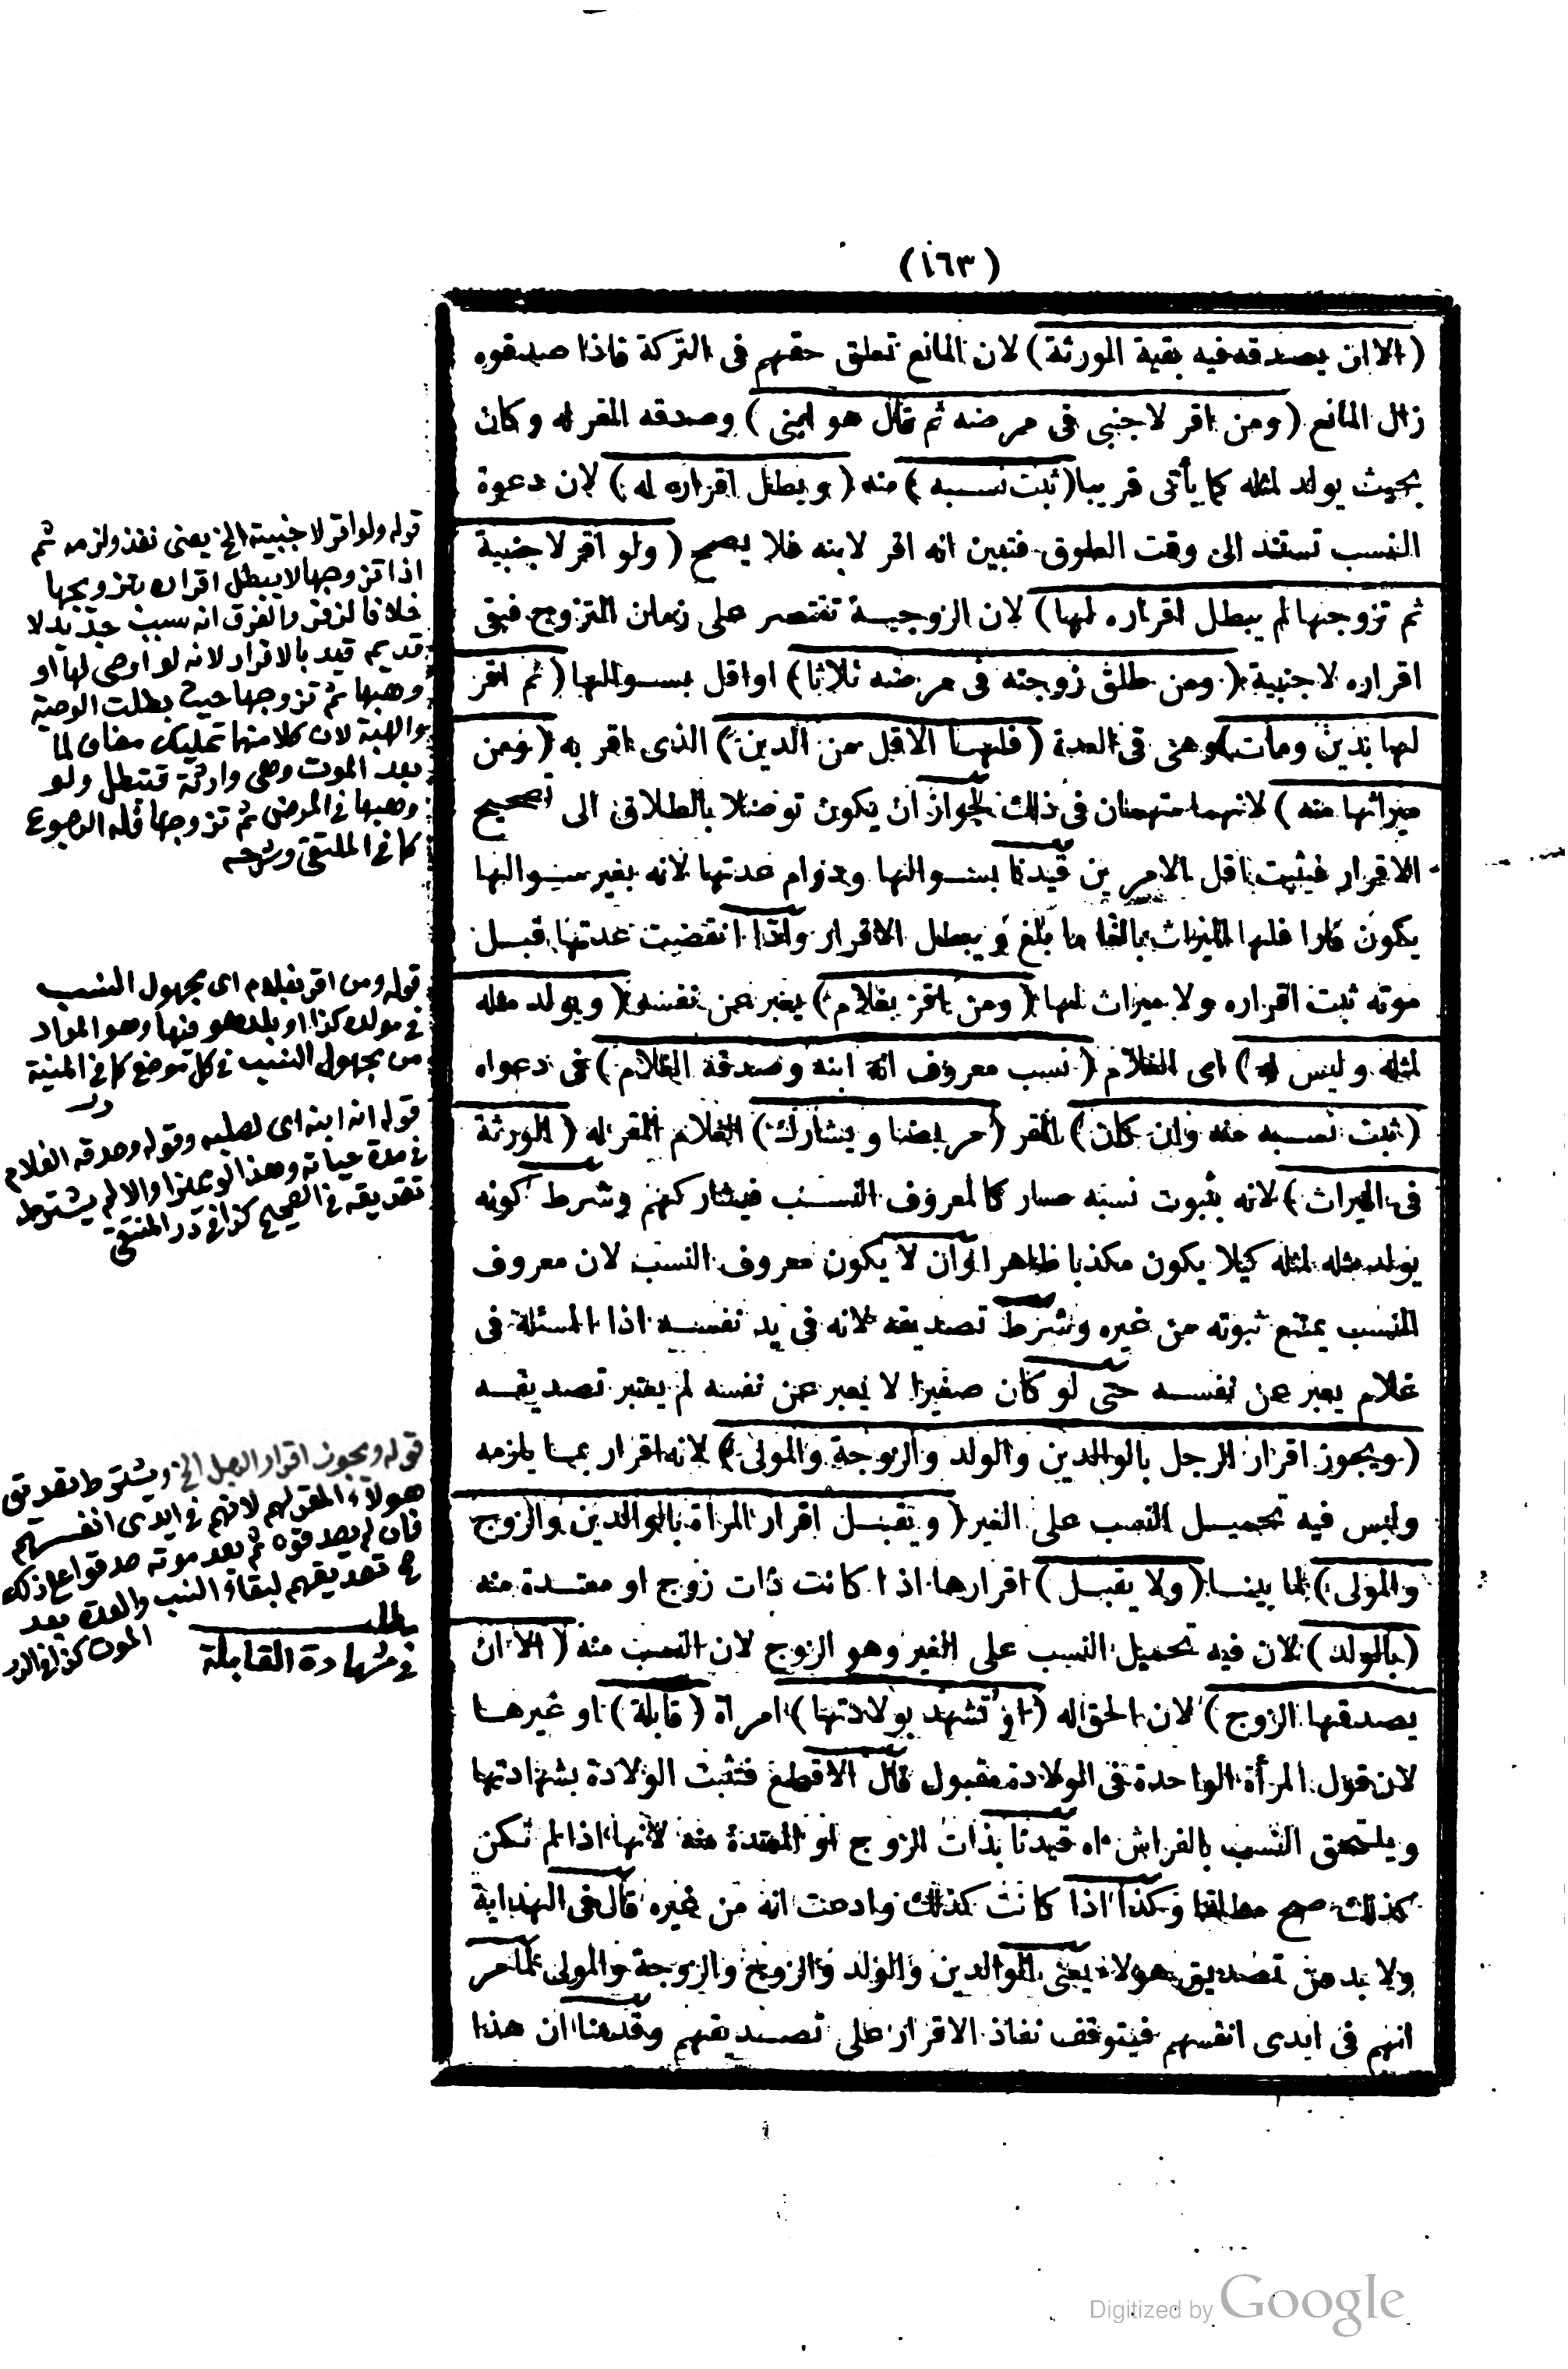 (١٦٣)
(الا ان يصدقه فيه بقية الورثة) لان المانع تعلق حقهم فى التركة فاذا صدقوه
زال المانع (ومن اقر لاجنبى فى مرضه ثم قال هو ابنى) وصدقه المقر له وكان
بحيث يولد لمثله كما يأتى قريبا (ثبت نسبه) منه (وبطل اقراره له) لان دعوة
النسب تستند الى وقت العلوق فتبين انه اقر لابنه فلا يصح (ولو اقر لاجنبية
ثم تزوجها لم يبطل اقراره لها) لان الزوجية تقتصر على زمان التزوج فبقى
اقراره لاجنبية (ومن طلق زوجته فى مرضه ثلاثا) او اقل بسوالها (ثم اقر
لها بدين ومات) وهى فى العدة (فلها الاقل من الدين) الذى اقر به (ومن
ميراثها منه) لانهما متهمان فى ذلك لجواز ان يكون توصلا بالطلاق الى تصحيح
الاقرار فيثبت اقل الامرين قيدنا بسوالها ودوام عدتها لانه بغير سوالها
يكون فارا فلها الميراث بالغا ما بلغ ويبطل الاقرار واذا انقضيت عدتها قبل
موته ثبت اقراره ولا ميراث لها (ومن اقر بغلام) يعبر عن نفسه (ويولد مثله
لمثله وليس له) اى الغلام (نسب معروف انه ابنه وصدقه الغلام) فى دعواه
(ثبت نسبه منه وان كان) المقر (مريضا ويشارك) الغلام المقر له (الورثة
فى الميراث) لانه بثبوت نسبه صار كالمعروف النسب فيشاركهم وشرط كونه
يولد مثله لمثله كيلا يكون مكذبا ظاهرا وان لا يكون معروف النسب لان معروف
النسب يمتنع ثبوته من غيره وشرط تصديقه لانه فى يد نفسه اذا المسئلة فى
غلام يعبر عن نفسه حتى لو كان صغيرا لا يعبر عن نفسه لم يعتبر تصديقه
(ويجوز اقرار الرجل بالوالدين والولد والزوجة والمولى) لانه اقرار بما يلزمه
وليس فيه تحميل النسب على الغير (ويقبل اقرار المرأة بالوالدين والزوج
والمولى) لما بينا (ولا يقبل) اقرارها اذا كانت ذات زوج او معتدة منه
(بالولد) لان فيه تحميل النسب على الغير وهو الزوج لان النسب منه (الا ان
يصدقها الزوج) لان الحق له (او تشهد بولادتها) امراة (قابلة) او غيرها
لان قول المرأة الواحدة فى الولادة مقبول قال الاقطع فتثبت الولادة بشهادتها
ويلتحق النسب بالفراش اه قيدنا بذات الزوج او المعتدة منه لانها اذا لم تكن
كذلك صح مطلقا وكذا اذا كانت كذلك وادعت انه من غيره قال فى الهداية
ولا بد من تصديق هولاء يعنى الوالدين والولد والزوج والزوجة والمولى لما مر
انهم فى ايدى انفسهم فيتوقف نفاذ الاقرار على تصديقهم وقدمنا ان هذا
قوله ولو اقر لاجنبية الخ يعنى نفذ ولزمه ثم
اذا تزوجها لا يبطل اقراره بتزويجها
خلافا لزفر والفرق انه سبب جديد لا
قديم قيد بالاقرار لانه لو اوصى لها او
وهبها ثم تزوجها حيث بطلت الوصية
والهبة لان كلا منهما تمليك مضاف لما
بعد الموت وهى وارثة فتبطل ولو
وهبها فى المرض ثم تزوجها فله الرجوع
كما فى الملتقى وشرحه
قوله ومن اقر بغلام اى مجهول النسب
فى مولده كذا او بلد هو فيها وهو المراد
من مجهول النسب فى كل موضع كما فى المنية
در
قوله انه ابنه اى لصلبه وقوله وصدقه الغلام
فى مدة حياته وهذا لو مميزا والا لم يشترط
تصديقه فى الصحيح كذا فى در المنتقى
قوله ويجوز اقرار الرجل الخ ويشترط تصديق
هولاء المقر لهم لانهم فى ايدى انفسهم
فان لم يصدقوه ثم بعد موته صدقوا على ذلك
صح تصديقهم لبقاء النسب والعدة بعد
الموت كذا فى الدر
مطلب
فى شهادة القابلة
Digitized by Google